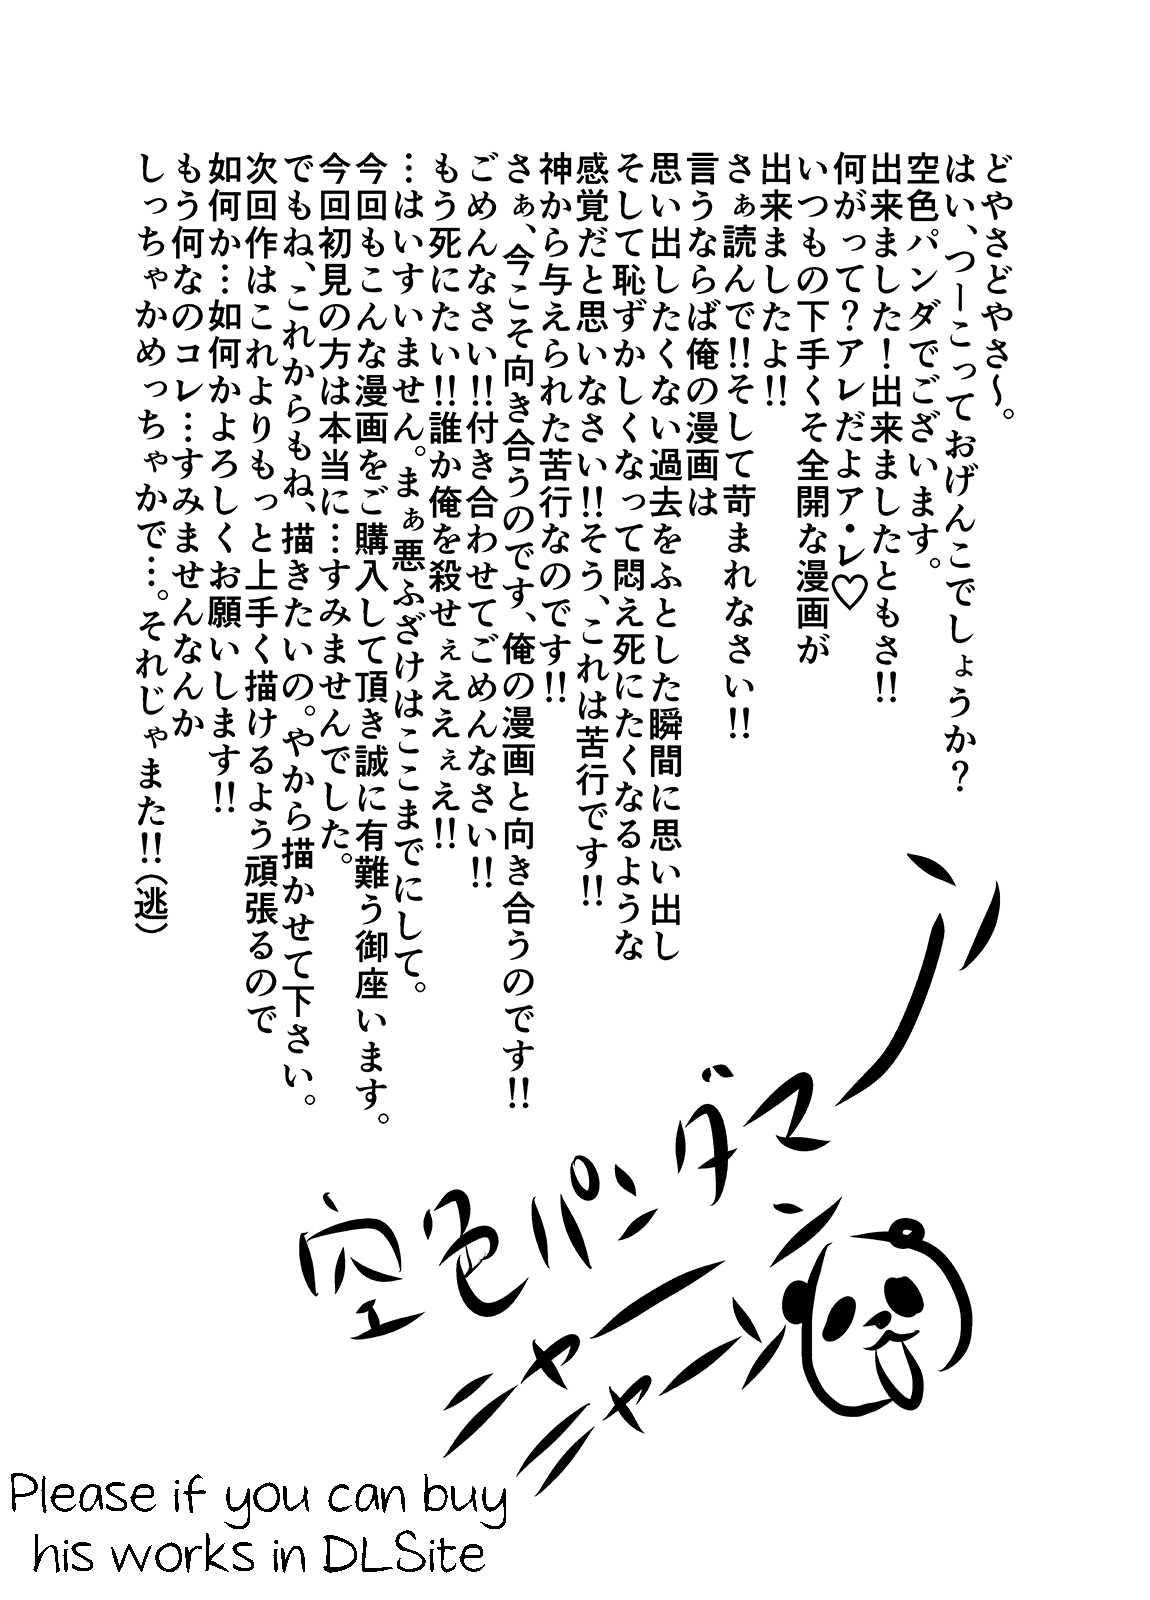 どやさどやさ～。
はい、つーこっておげんこでしょうか？
空色パンダでございます。
出来ました！出来ましたともさ!!
何がって？アレだよア・レ♡
いつもの下手くそ全開な漫画が
出来ましたよ!!
さぁ読んで!!そして苛まれなさい!!
言うならば俺の漫画は
思い出したくない過去をふとした瞬間に思い出し
そして恥ずかしくなって悶え死にたくなるような
感覚だと思いなさい!!そう、これは苦行です!!
神から与えられた苦行なのです!!
さぁ、今こそ向き合うのです、俺の漫画と向き合うのです!!
ごめんなさい!!付き合わせてごめんなさい!!
もう死にたい!!誰か俺を殺せぇええぇえ!!
…はいすいません。まぁ悪ふざけはここまでにして。
今回もこんな漫画をご購入して頂き誠に有難う御座います。
今回初見の方は本当に…すみませんでした。
でもね、これからもね、描きたいの。やから描かせて下さい。
次回作はこれよりもっと上手く描けるよう頑張るので
如何か…如何かよろしくお願いします!!
もう何なのコレ…すみませんなんか
しっちゃかめっちゃかで…。それじゃまた!!（逃）
空色パンダマン
ニャーン
ニャーン
Please if you can buy
his works in DLSite